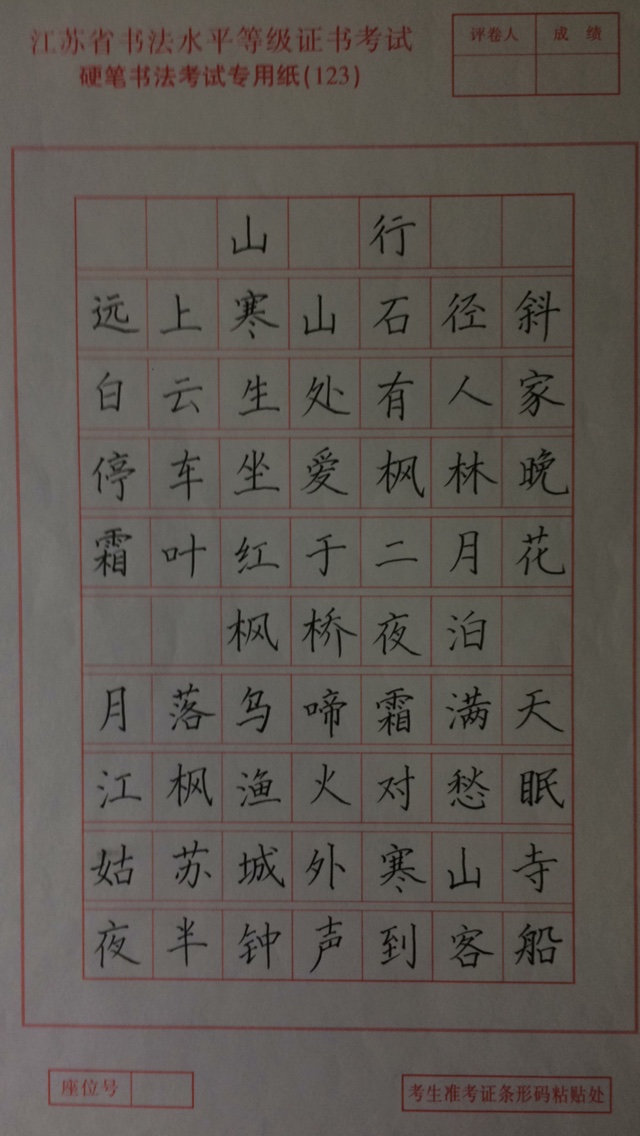 江苏省书法水平等级证书考试
硬笔书法考试专用纸(123)
评卷人 成绩
山行
远上寒山石径斜
白云生处有人家
停车坐爱枫林晚
霜叶红于二月花
枫桥夜泊
月落乌啼霜满天
江枫渔火对愁眠
姑苏城外寒山寺
夜半钟声到客船
座位号
考生准考证条形码粘贴处